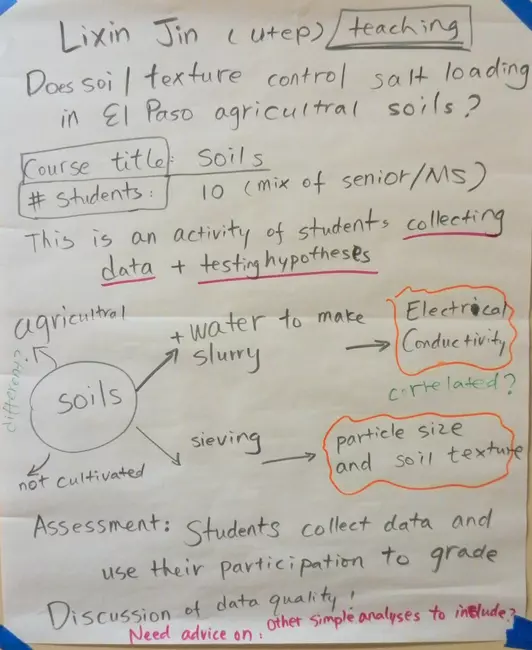 Lixin Jin (utep) teaching
Does soil texture control salt loading
in El Paso agricultral soils?
Course title: Soils
# Students: 10 (mix of senior/MS)
This is an activity of students collecting
data + testing hypotheses
agricultral
different?
soils
not cultivated
+ water to make
slurry
Electrical
Conductivity
correlated?
sieving
particle size
and soil texture
Assessment: Students collect data and
use their participation to grade
Discussion of data quality!
Need advice on: Other simple analyses to include?